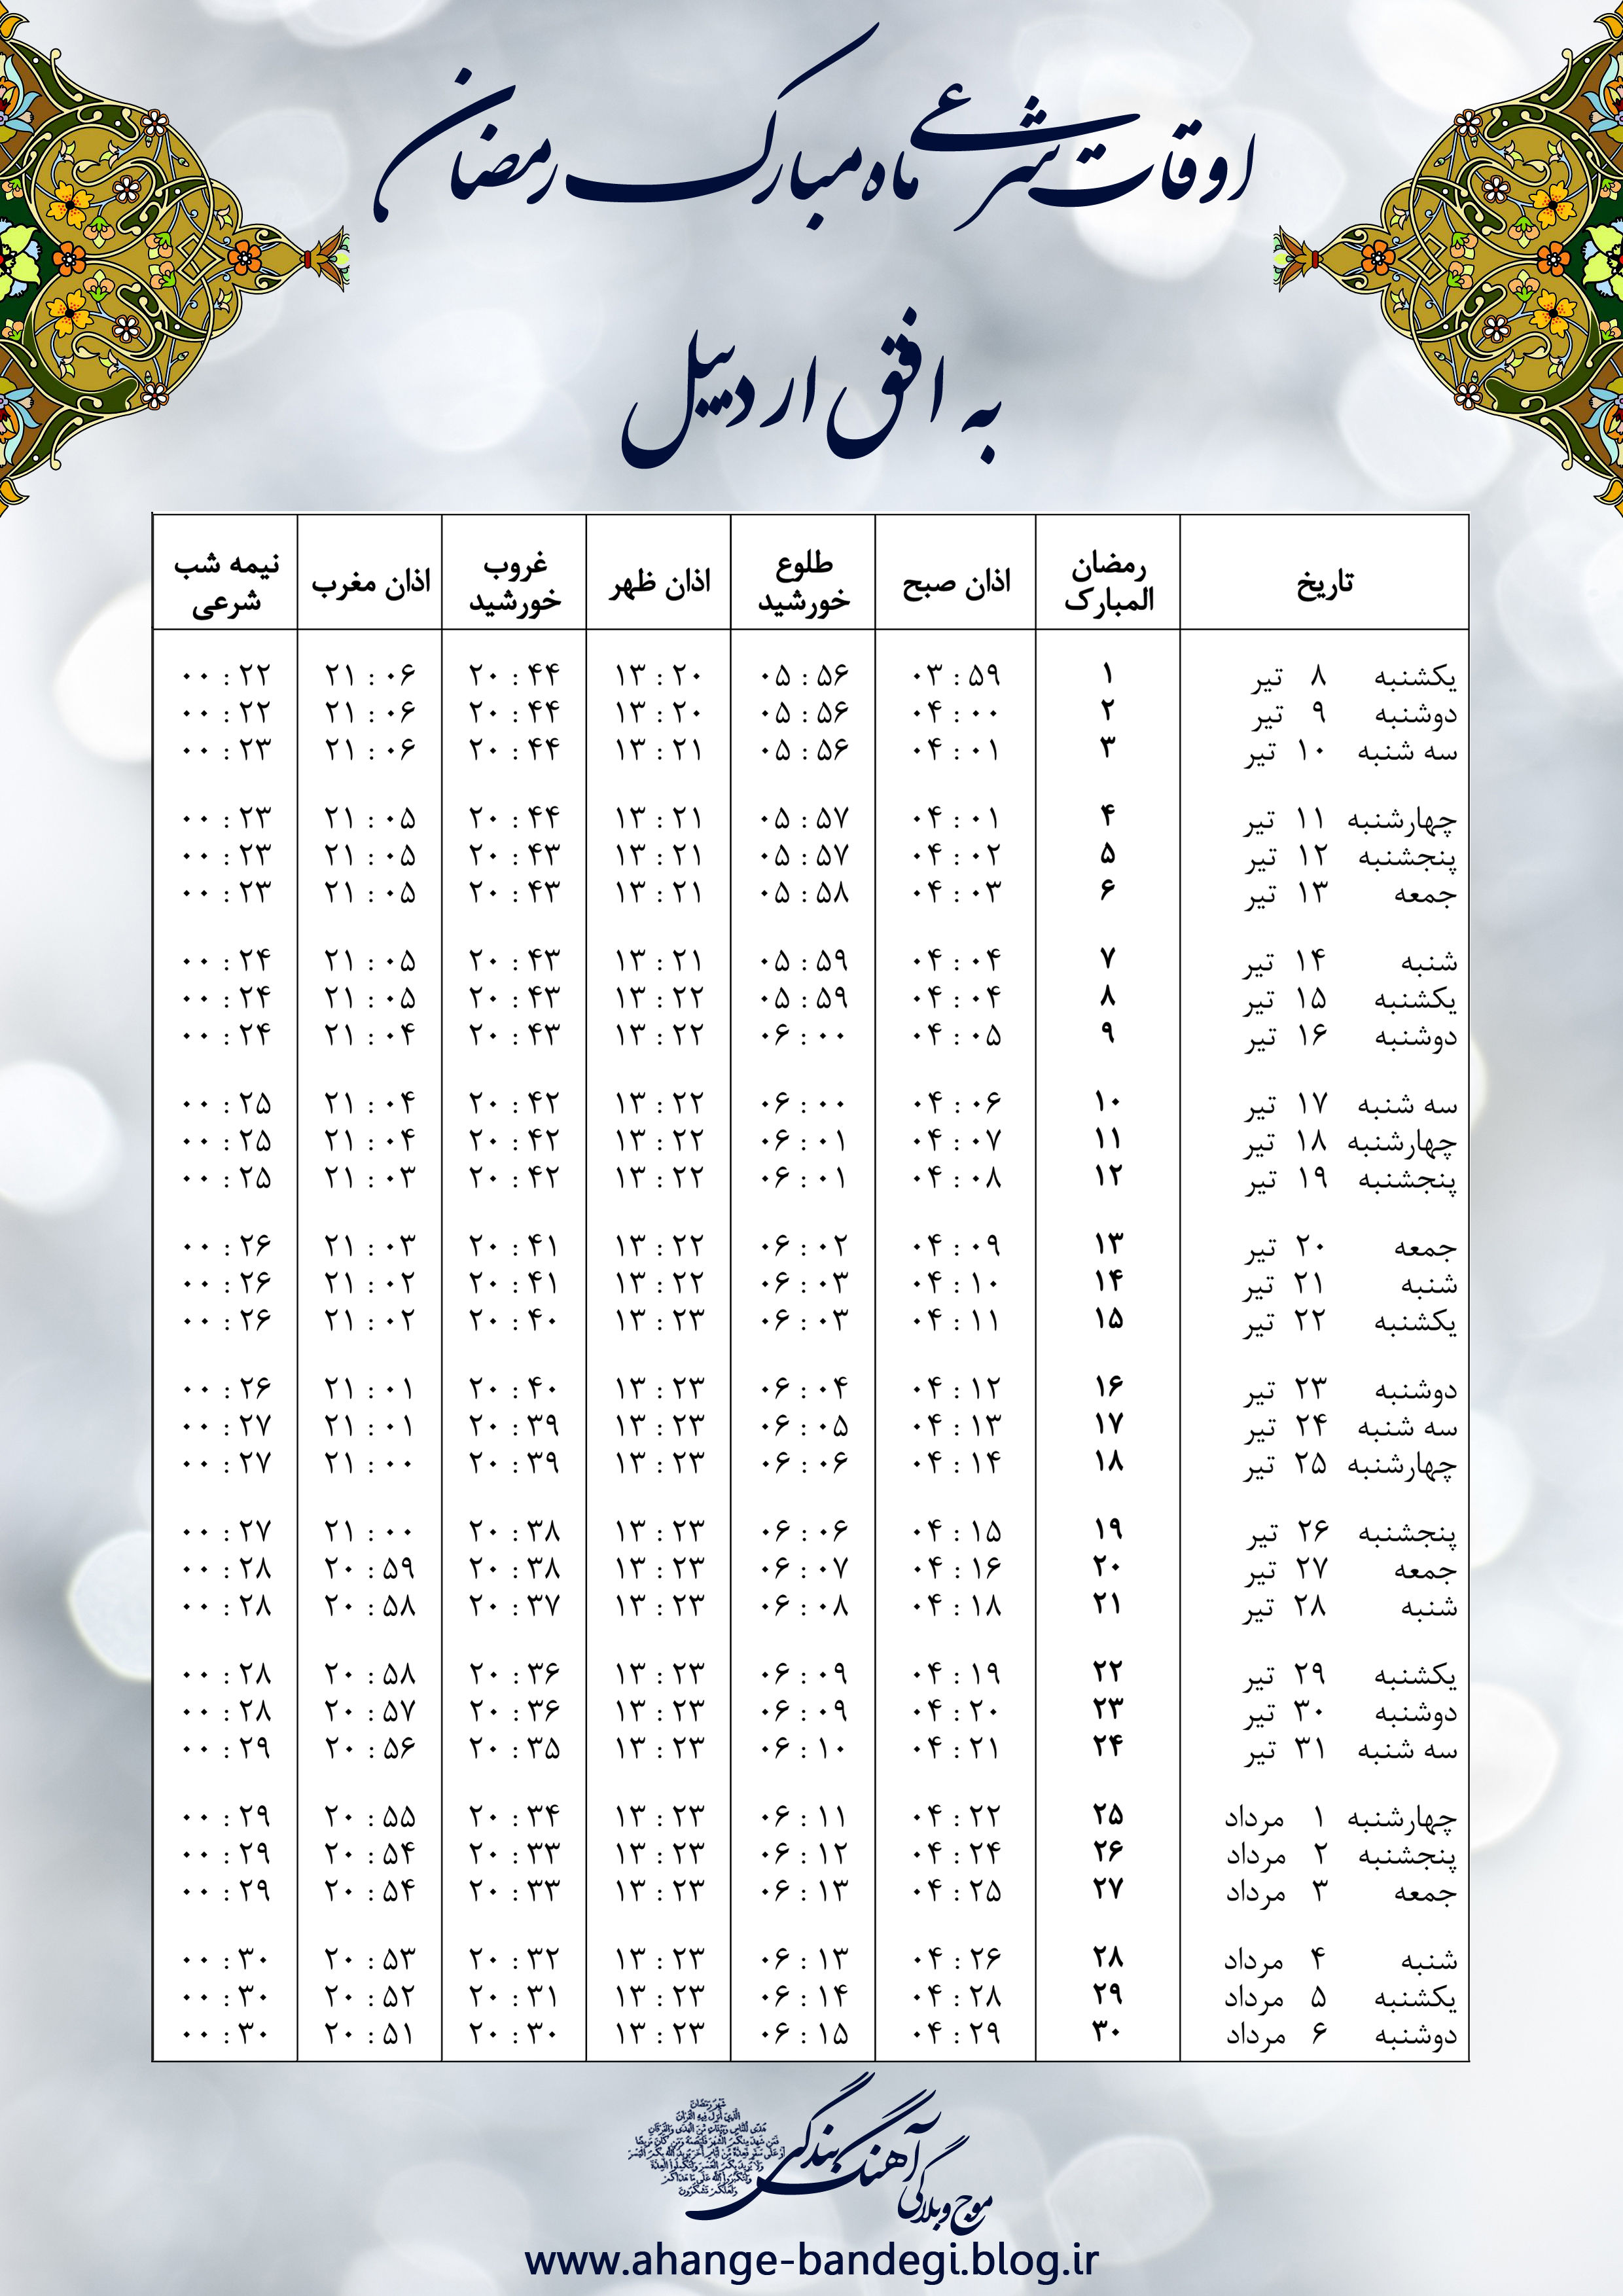 اوقات شرعی ماه مبارک رمضان
به افق اردبیل
تاریخ رمضان المبارک اذان صبح طلوع خورشید اذان ظهر غروب خورشید اذان مغرب نیمه شب شرعی
یکشنبه ۸ تیر ۱ ۰۳:۵۹ ۰۵:۵۶ ۱۳:۲۰ ۲۰:۴۴ ۲۱:۰۶ ۰۰:۲۲
دوشنبه ۹ تیر ۲ ۰۴:۰۰ ۰۵:۵۶ ۱۳:۲۰ ۲۰:۴۴ ۲۱:۰۶ ۰۰:۲۲
سه شنبه ۱۰ تیر ۳ ۰۴:۰۱ ۰۵:۵۶ ۱۳:۲۱ ۲۰:۴۴ ۲۱:۰۶ ۰۰:۲۳
چهارشنبه ۱۱ تیر ۴ ۰۴:۰۱ ۰۵:۵۷ ۱۳:۲۱ ۲۰:۴۴ ۲۱:۰۵ ۰۰:۲۳
پنجشنبه ۱۲ تیر ۵ ۰۴:۰۲ ۰۵:۵۷ ۱۳:۲۱ ۲۰:۴۳ ۲۱:۰۵ ۰۰:۲۳
جمعه ۱۳ تیر ۶ ۰۴:۰۳ ۰۵:۵۸ ۱۳:۲۱ ۲۰:۴۳ ۲۱:۰۵ ۰۰:۲۳
شنبه ۱۴ تیر ۷ ۰۴:۰۴ ۰۵:۵۹ ۱۳:۲۱ ۲۰:۴۳ ۲۱:۰۵ ۰۰:۲۴
یکشنبه ۱۵ تیر ۸ ۰۴:۰۴ ۰۵:۵۹ ۱۳:۲۲ ۲۰:۴۳ ۲۱:۰۵ ۰۰:۲۴
دوشنبه ۱۶ تیر ۹ ۰۴:۰۵ ۰۶:۰۰ ۱۳:۲۲ ۲۰:۴۳ ۲۱:۰۴ ۰۰:۲۴
سه شنبه ۱۷ تیر ۱۰ ۰۴:۰۶ ۰۶:۰۰ ۱۳:۲۲ ۲۰:۴۲ ۲۱:۰۴ ۰۰:۲۵
چهارشنبه ۱۸ تیر ۱۱ ۰۴:۰۷ ۰۶:۰۱ ۱۳:۲۲ ۲۰:۴۲ ۲۱:۰۴ ۰۰:۲۵
پنجشنبه ۱۹ تیر ۱۲ ۰۴:۰۸ ۰۶:۰۱ ۱۳:۲۲ ۲۰:۴۲ ۲۱:۰۳ ۰۰:۲۵
جمعه ۲۰ تیر ۱۳ ۰۴:۰۹ ۰۶:۰۲ ۱۳:۲۲ ۲۰:۴۱ ۲۱:۰۳ ۰۰:۲۶
شنبه ۲۱ تیر ۱۴ ۰۴:۱۰ ۰۶:۰۳ ۱۳:۲۲ ۲۰:۴۱ ۲۱:۰۲ ۰۰:۲۶
یکشنبه ۲۲ تیر ۱۵ ۰۴:۱۱ ۰۶:۰۳ ۱۳:۲۳ ۲۰:۴۰ ۲۱:۰۲ ۰۰:۲۶
دوشنبه ۲۳ تیر ۱۶ ۰۴:۱۲ ۰۶:۰۴ ۱۳:۲۳ ۲۰:۴۰ ۲۱:۰۱ ۰۰:۲۶
سه شنبه ۲۴ تیر ۱۷ ۰۴:۱۳ ۰۶:۰۵ ۱۳:۲۳ ۲۰:۳۹ ۲۱:۰۱ ۰۰:۲۷
چهارشنبه ۲۵ تیر ۱۸ ۰۴:۱۴ ۰۶:۰۶ ۱۳:۲۳ ۲۰:۳۹ ۲۱:۰۰ ۰۰:۲۷
پنجشنبه ۲۶ تیر ۱۹ ۰۴:۱۵ ۰۶:۰۶ ۱۳:۲۳ ۲۰:۳۸ ۲۱:۰۰ ۰۰:۲۷
جمعه ۲۷ تیر ۲۰ ۰۴:۱۶ ۰۶:۰۷ ۱۳:۲۳ ۲۰:۳۸ ۲۰:۵۹ ۰۰:۲۸
شنبه ۲۸ تیر ۲۱ ۰۴:۱۸ ۰۶:۰۸ ۱۳:۲۳ ۲۰:۳۷ ۲۰:۵۸ ۰۰:۲۸
یکشنبه ۲۹ تیر ۲۲ ۰۴:۱۹ ۰۶:۰۹ ۱۳:۲۳ ۲۰:۳۶ ۲۰:۵۸ ۰۰:۲۸
دوشنبه ۳۰ تیر ۲۳ ۰۴:۲۰ ۰۶:۰۹ ۱۳:۲۳ ۲۰:۳۶ ۲۰:۵۷ ۰۰:۲۸
سه شنبه ۳۱ تیر ۲۴ ۰۴:۲۱ ۰۶:۱۰ ۱۳:۲۳ ۲۰:۳۵ ۲۰:۵۶ ۰۰:۲۹
چهارشنبه ۱ مرداد ۲۵ ۰۴:۲۲ ۰۶:۱۱ ۱۳:۲۳ ۲۰:۳۴ ۲۰:۵۵ ۰۰:۲۹
پنجشنبه ۲ مرداد ۲۶ ۰۴:۲۴ ۰۶:۱۲ ۱۳:۲۳ ۲۰:۳۳ ۲۰:۵۴ ۰۰:۲۹
جمعه ۳ مرداد ۲۷ ۰۴:۲۵ ۰۶:۱۳ ۱۳:۲۳ ۲۰:۳۳ ۲۰:۵۴ ۰۰:۲۹
شنبه ۴ مرداد ۲۸ ۰۴:۲۶ ۰۶:۱۳ ۱۳:۲۳ ۲۰:۳۲ ۲۰:۵۳ ۰۰:۳۰
یکشنبه ۵ مرداد ۲۹ ۰۴:۲۸ ۰۶:۱۴ ۱۳:۲۳ ۲۰:۳۱ ۲۰:۵۲ ۰۰:۳۰
دوشنبه ۶ مرداد ۳۰ ۰۴:۲۹ ۰۶:۱۵ ۱۳:۲۳ ۲۰:۳۰ ۲۰:۵۱ ۰۰:۳۰
موج وبلاگی آهنگ بندگی
www.ahange-bandegi.blog.ir